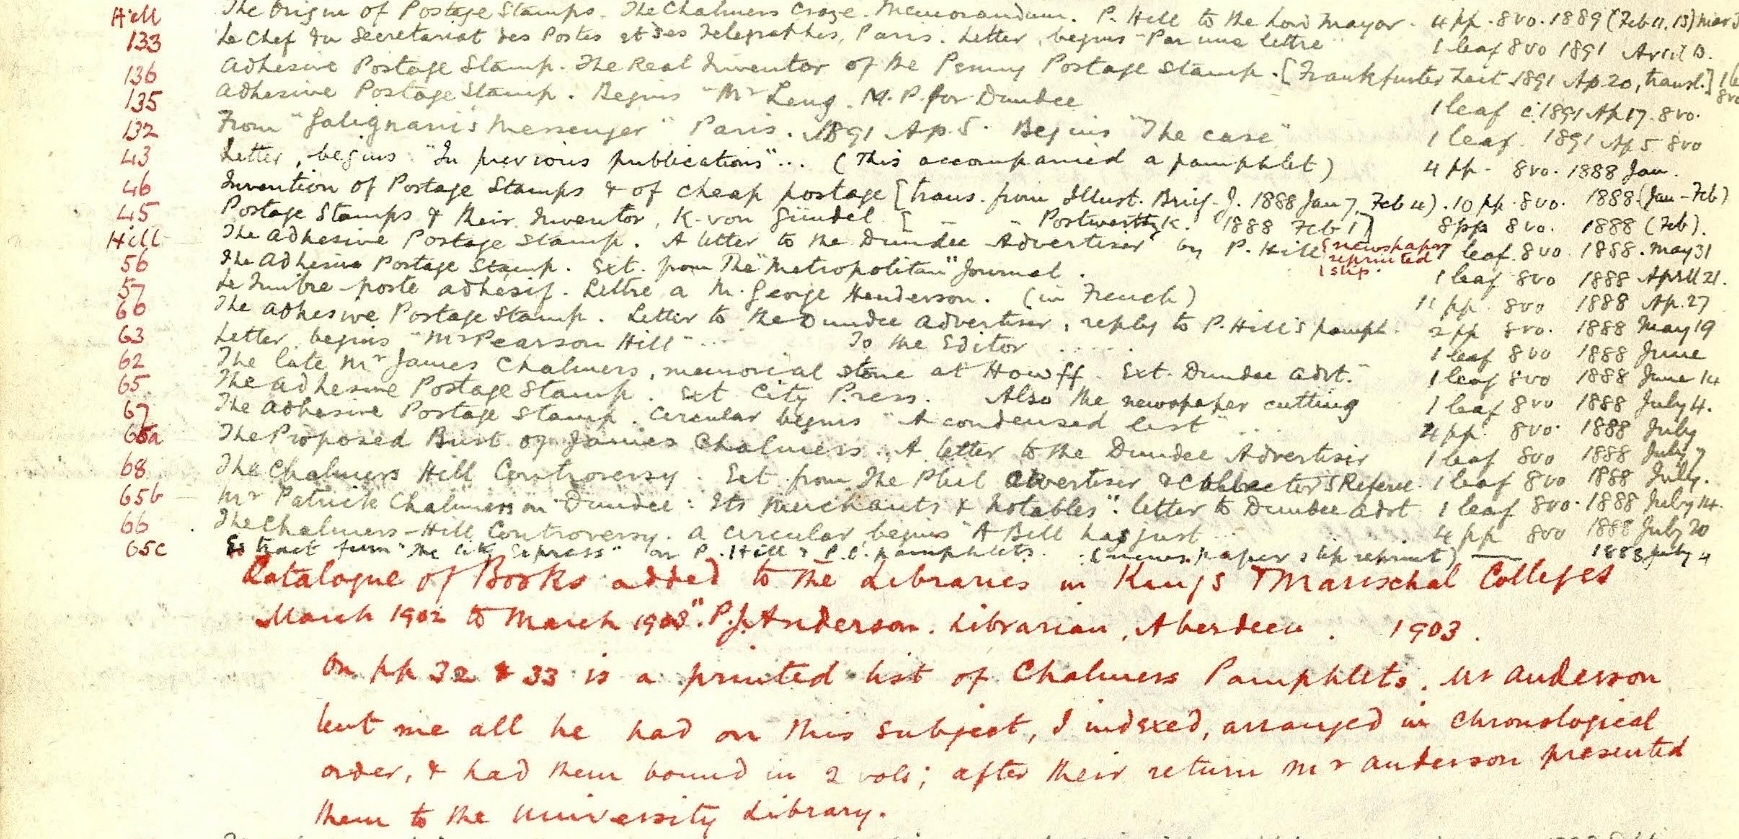 Hill The Origin of Postage Stamps. The Chalmers Craze. Memorandum. P. Hill to the Lord Mayor. 4 pp. 8vo. 1889 (Feb 11, 13)
133 Le Chef du Secretariat des Postes et des Telegraphes, Paris. Letter, begins "Par une lettre" 1 leaf 8vo 1891 April 13.
136 Adhesive Postage Stamp. The Real Inventor of the Penny Postage Stamp. [Frankfurter Zeit 1891 Ap. 20, transl.]
135 Adhesive Postage Stamp. Begins "Mr Leng. M.P. for Dundee 1 leaf c. 1891 Ap 17. 8vo.
132 From "Galignani's Messenger" Paris. 1891 Ap. 5. Begins "The case" 1 leaf. 1891 Ap 5 8vo
43 Letter, begins "In previous publications"... (This accompanied a pamphlet) 4 pp. 8vo. 1888 Jan.
46 Invention of Postage Stamps & of cheap postage [trans. from Illust. Brief. J. 1888 Jan 7, Feb 4). 10 pp. 8vo. 1888. (Jan - Feb)
45 Postage Stamps & their Inventor, K. von Gündel [ - - Postwerthk. 1888 Feb 1] 8 pp 8vo. 1888 (Feb).
Hill The Adhesive Postage Stamp. A letter to the Dundee Advertiser by P. Hill [newspaper reprinted 1 slip. 1 leaf. 8vo. 1888. May 31
56 The Adhesive Postage Stamp. Ext. from The "Metropolitan" Journal. 1 leaf 8vo 1888 April 21.
57 Le Timbre-poste adhésif. Lettre a M. George Henderson. (in French) 11 pp 8vo 1888 Ap. 27
60 The Adhesive Postage Stamp. Letter to the Dundee Advertiser, reply to P. Hill's pamph. 2 pp 8vo. 1888 May 19
63 Letter, begins "Mr Pearson Hill"... To the Editor ..... 1 leaf 8vo 1888 June
62 The late Mr James Chalmers, memorial stone at Howff. Ext. Dundee Advt." 1 leaf 8vo 1888 June 14
65 The Adhesive Postage Stamp. Ext City Press. Also the newspaper cutting 1 leaf 8vo 1888 July 4.
67 The Adhesive Postage Stamp. Circular begins "A condensed list" .. 4 pp. 8vo. 1888 July
65a The Proposed Bust of James Chalmers. A letter to the Dundee Advertiser 1 leaf 8vo 1888 July 7
68 The Chalmers Hill Controversy. Ext from The Phil Advertiser & Collector's Referee. 1 leaf 8vo 1888 July.
65b Mr Patrick Chalmers on "Dundee: Its Merchants & Notables". letter to Dundee Advt 1 leaf 8vo. 1888 July 14.
66 The Chalmers-Hill Controversy. A circular begins "A Bill has just 4 pp 8vo 1888 July 20
65c Extract from "The City Express" on P. Hill & P.C. pamphlets. (newspaper slip reprint) — 1888 July 4
Catalogue of Books added to the Libraries in Kings & Marischal Colleges
March 1902 to March 1903". P. J. Anderson. Librarian, Aberdeen. 1903.
On pp 32 & 33 is a printed list of Chalmers Pamphlets. Mr Anderson
lent me all he had on this subject, I indexed, arranged in chronological
order, & had them bound in 2 vols; after their return Mr Anderson presented
them to the University Library.